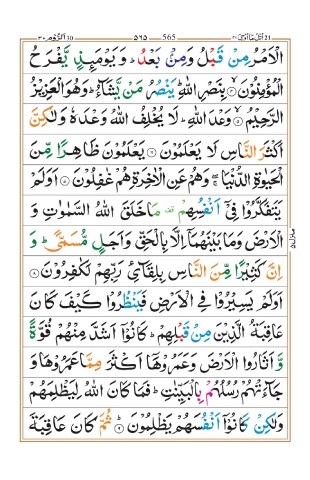 الروم ٣٠ ٥٦٥ 565 اتل ما اوحی ٢١
الْاَمْرُ مِنْ قَبْلُ وَمِنْۢ بَعْدُ ؕ وَيَوْمَئِذٍ يَّفْرَحُ
الْمُؤْمِنُوْنَ ۙ بِنَصْرِ اللّٰهِ ؕ يَنْصُرُ مَنْ يَّشَآءُ ؕ وَهُوَ الْعَزِيْزُ
الرَّحِيْمُ ۙ وَعْدَ اللّٰهِ ؕ لَا يُخْلِفُ اللّٰهُ وَعْدَهٗ وَلٰكِنَّ
اَكْثَرَ النَّاسِ لَا يَعْلَمُوْنَ ۶ يَعْلَمُوْنَ ظَاهِرًا مِّنَ
الْحَيٰوةِ الدُّنْيَا ۖۚ وَهُمْ عَنِ الْاٰخِرَةِ هُمْ غٰفِلُوْنَ ۷ اَوَلَمْ
يَتَفَكَّرُوْا فِيْۤ اَنْفُسِهِمْ ۫ مَا خَلَقَ اللّٰهُ السَّمٰوٰتِ وَ
الْاَرْضَ وَمَا بَيْنَهُمَاۤ اِلَّا بِالْحَقِّ وَاَجَلٍ مُّسَمًّى ؕ وَ
اِنَّ كَثِيْرًا مِّنَ النَّاسِ بِلِقَآئِ رَبِّهِمْ لَكٰفِرُوْنَ ۸
اَوَلَمْ يَسِيْرُوْا فِي الْاَرْضِ فَيَنْظُرُوْا كَيْفَ كَانَ
عَاقِبَةُ الَّذِيْنَ مِنْ قَبْلِهِمْ ؕ كَانُوْۤا اَشَدَّ مِنْهُمْ قُوَّةً
وَّ اَثَارُوا الْاَرْضَ وَعَمَرُوْهَاۤ اَكْثَرَ مِمَّا عَمَرُوْهَا وَ
جَآءَتْهُمْ رُسُلُهُمْ بِالْبَيِّنٰتِ ؕ فَمَا كَانَ اللّٰهُ لِيَظْلِمَهُمْ
وَلٰكِنْ كَانُوْۤا اَنْفُسَهُمْ يَظْلِمُوْنَ ؕ ۹ ثُمَّ كَانَ عَاقِبَةَ